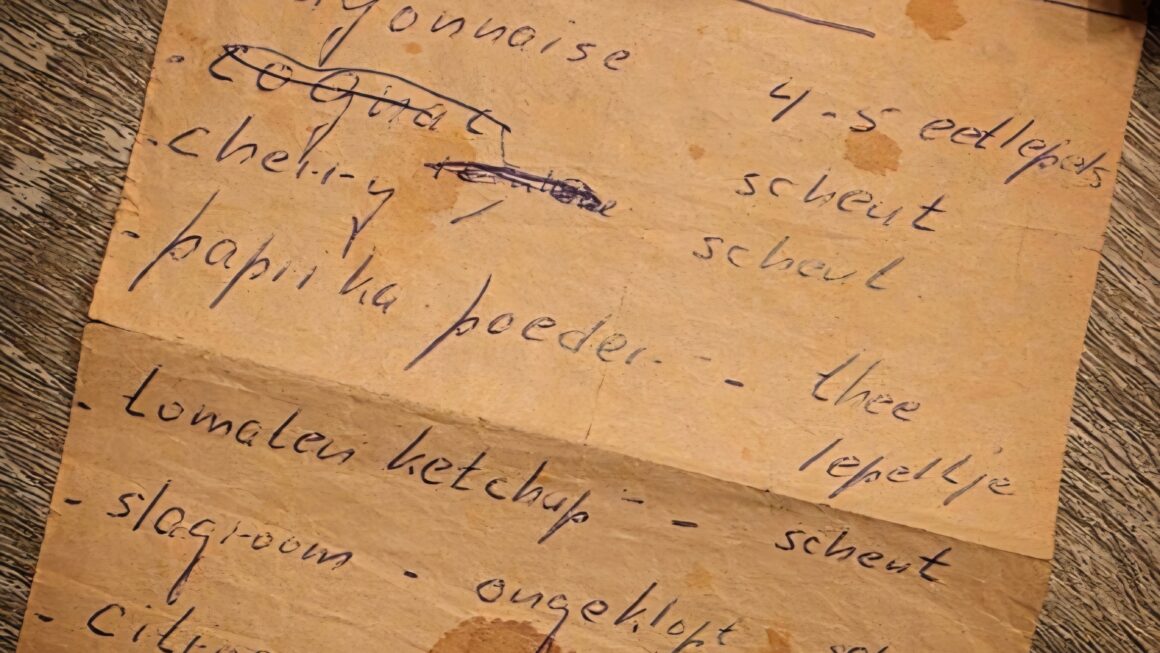 ayonnaise 4-5 eetlepels
- Cognac scheut
- cherry scheut
- paprika poeder - - thee
lepeltje
- tomaten ketchup - - scheut
- slagroom - ongeklopt
- citro